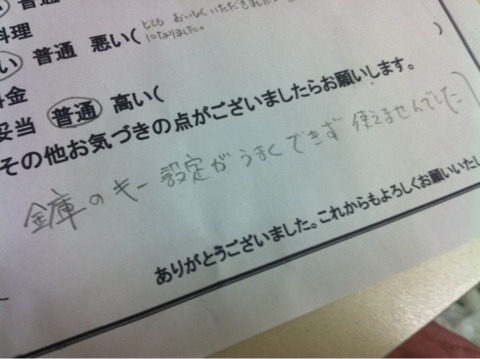 普通
とても おいしくいただきました。
になりました。
料理
い 普通 悪い( )
料金
妥当 普通 高い(
その他お気づきの点がございましたらお願いします。
金庫のキー設定がうまくできず 使えませんでした)
ありがとうございました。これからもよろしくお願いいたし